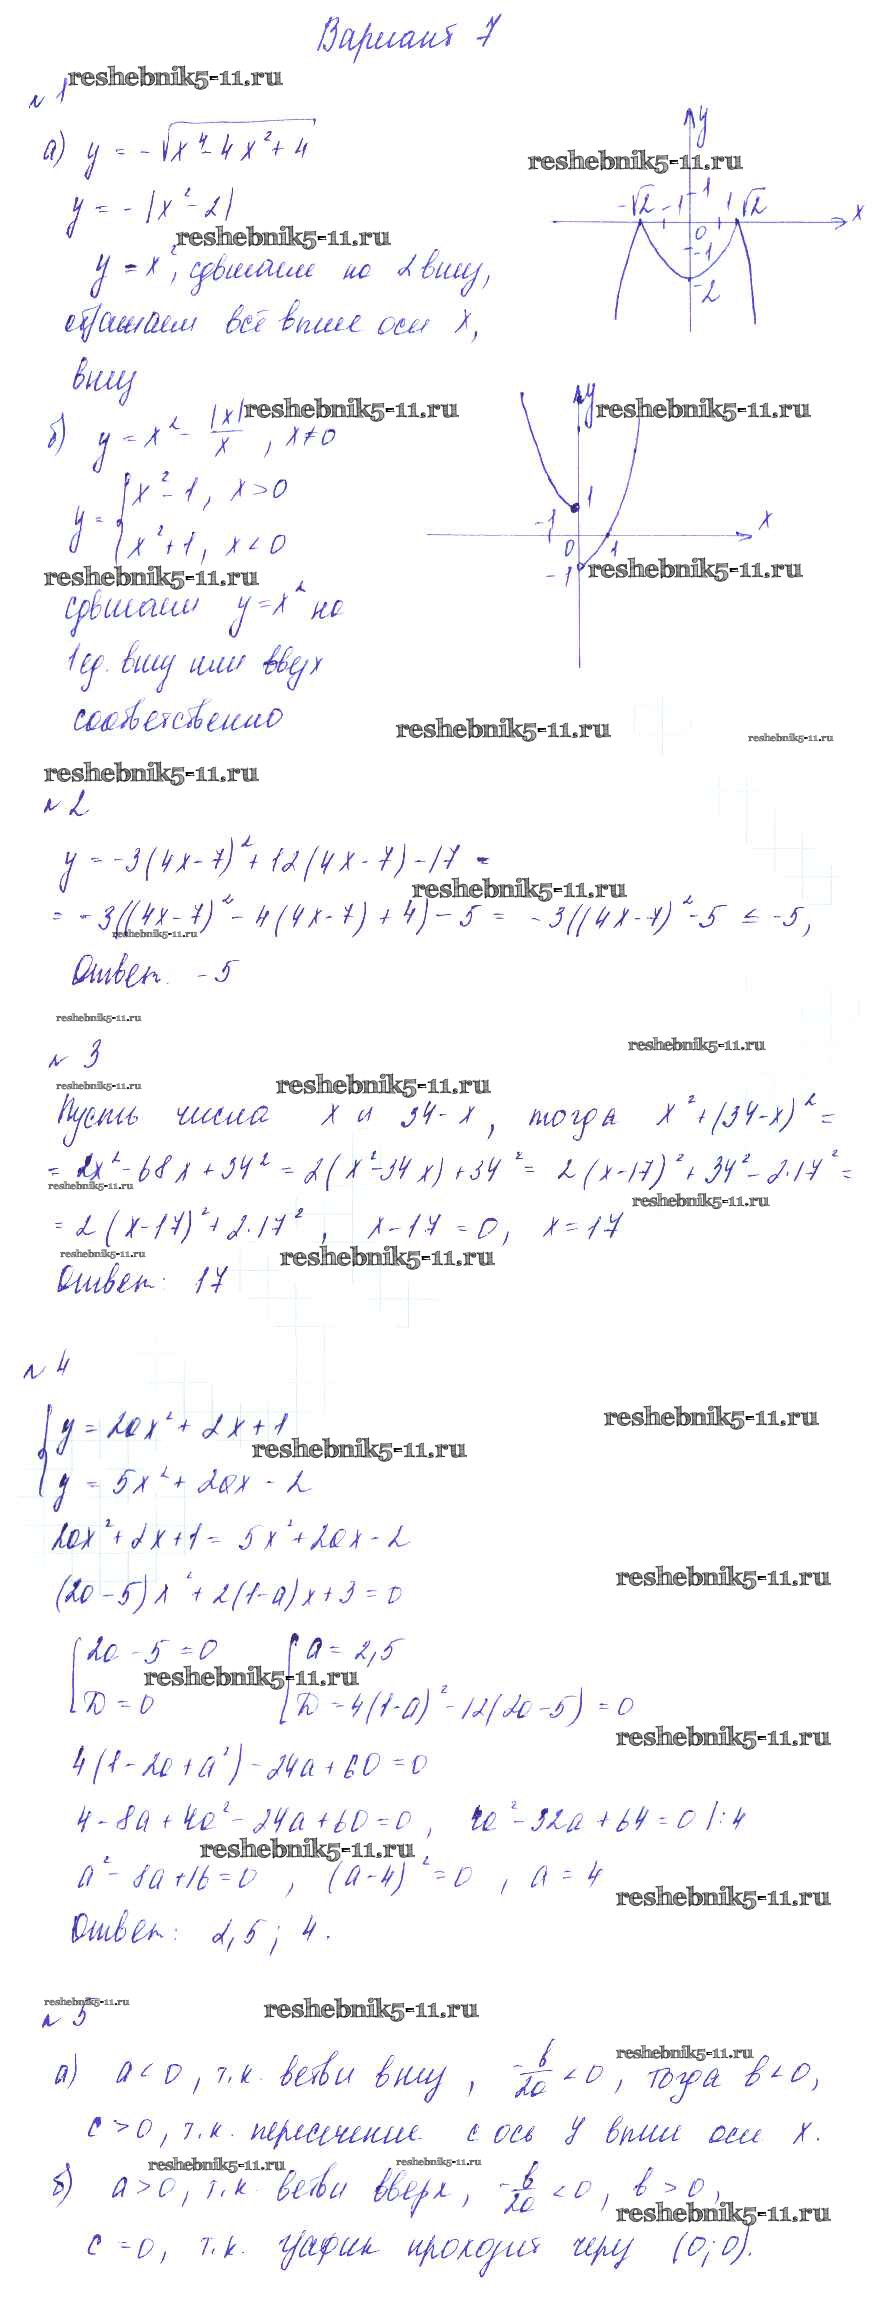 Вариант 7
reshebnik5-11.ru
№ 1
а) y = -√(x⁴-4x²+4)
reshebnik5-11.ru
y = -|x²-2|
reshebnik5-11.ru
y = x², сдвигаем на 2 вниз,
отражаем всё выше оси x,
вниз
y
1
-√2 -1 1 √2 x
0
-1
-2
reshebnik5-11.ru
reshebnik5-11.ru
б) y = x² - |x|/x , x≠0
y = { x²-1, x>0
x²+1, x<0
reshebnik5-11.ru
сдвигаем y=x² на
1 ед. вниз или вверх
соответственно
y
1
-1 x
0 1
-1
reshebnik5-11.ru
reshebnik5-11.ru
reshebnik5-11.ru
reshebnik5-11.ru
№ 2
y = -3(4x-7)²+12(4x-7)-17 =
reshebnik5-11.ru
= -3((4x-7)²-4(4x-7)+4)-5 = -3((4x-7)²-5 ≤ -5,
reshebnik5-11.ru
Ответ. -5
reshebnik5-11.ru
reshebnik5-11.ru
№ 3
reshebnik5-11.ru
reshebnik5-11.ru
Пусть числа x и 34-x, тогда x²+(34-x)² =
= 2x²-68x+34² = 2(x²-34x)+34² = 2(x-17)²+34²-2·17² =
reshebnik5-11.ru
reshebnik5-11.ru
= 2(x-17)²+2·17², x-17=0, x=17
reshebnik5-11.ru
reshebnik5-11.ru
Ответ: 17
№ 4
{ y = 2ax²+2x+1
reshebnik5-11.ru
reshebnik5-11.ru
y = 5x²+2ax-2
2ax²+2x+1 = 5x²+2ax-2
reshebnik5-11.ru
(2a-5)x²+2(1-a)x+3=0
[ 2a-5=0 [ a=2,5
reshebnik5-11.ru
Д=0 Д=4(1-a)²-12(2a-5)=0
reshebnik5-11.ru
4(1-2a+a²)-24a+60=0
4-8a+4a²-24a+60=0, 4a²-32a+64=0 |:4
reshebnik5-11.ru
a²-8a+16=0, (a-4)²=0, a=4
reshebnik5-11.ru
Ответ: 2,5; 4.
reshebnik5-11.ru
reshebnik5-11.ru
№ 5
reshebnik5-11.ru
а) a<0, т.к. ветви вниз, -b/2a <0, тогда b<0,
c>0, т.к. пересечение с ось y выше оси x.
reshebnik5-11.ru
reshebnik5-11.ru
б) a>0, т.к. ветви вверх, -b/2a <0, b>0,
reshebnik5-11.ru
c=0, т.к. график проходит через (0;0).